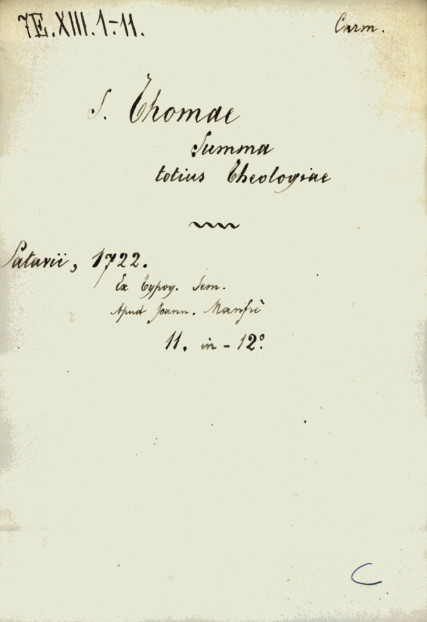 7E.XIII.1-11.
Carm.
S. Thomae
Summa
totius Theologiae
Patavii, 1722.
Ex Typog. Sem.
Apud Joann. Manfrè
11. in - 12º
C